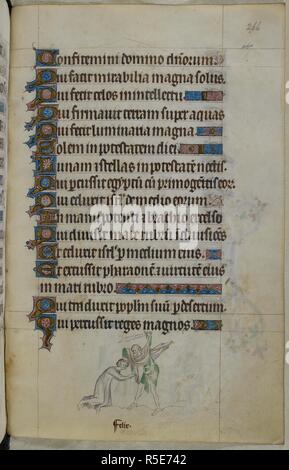 266
Confitemini domino dominorum
Qui facit mirabilia magna solus.
Qui fecit celos in intellectu
Qui firmavit terram super aquas
Qui fecit luminaria magna
Solem in potestatem diei
Lunam et stellas in potestatem noctis.
Qui percussit egyptum cum primogenitis eorum.
Qui eduxit de medio eorum
In manu potenti et brachio excelso
Qui divisit mare rubrum in divisiones
Et eduxit israel per medium eius.
Et excussit pharaonem et virtutem eius
in mari rubro.
Qui traduxit populum suum per desertum.
Qui percussit reges magnos.
Felix.
alamy
Image ID: R5E742
www.alamy.com